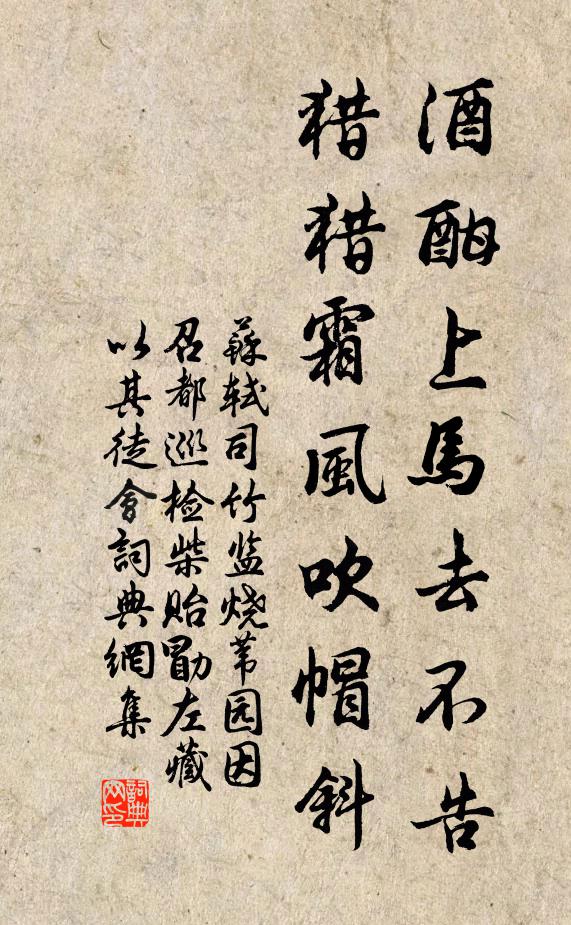 酒酣上馬去不告
猎猎霜風吹帽斜
蘇轼司竹监烧苇园因
召都巡检柴贻勖左藏
以其徒會詞典網集
詞典網印